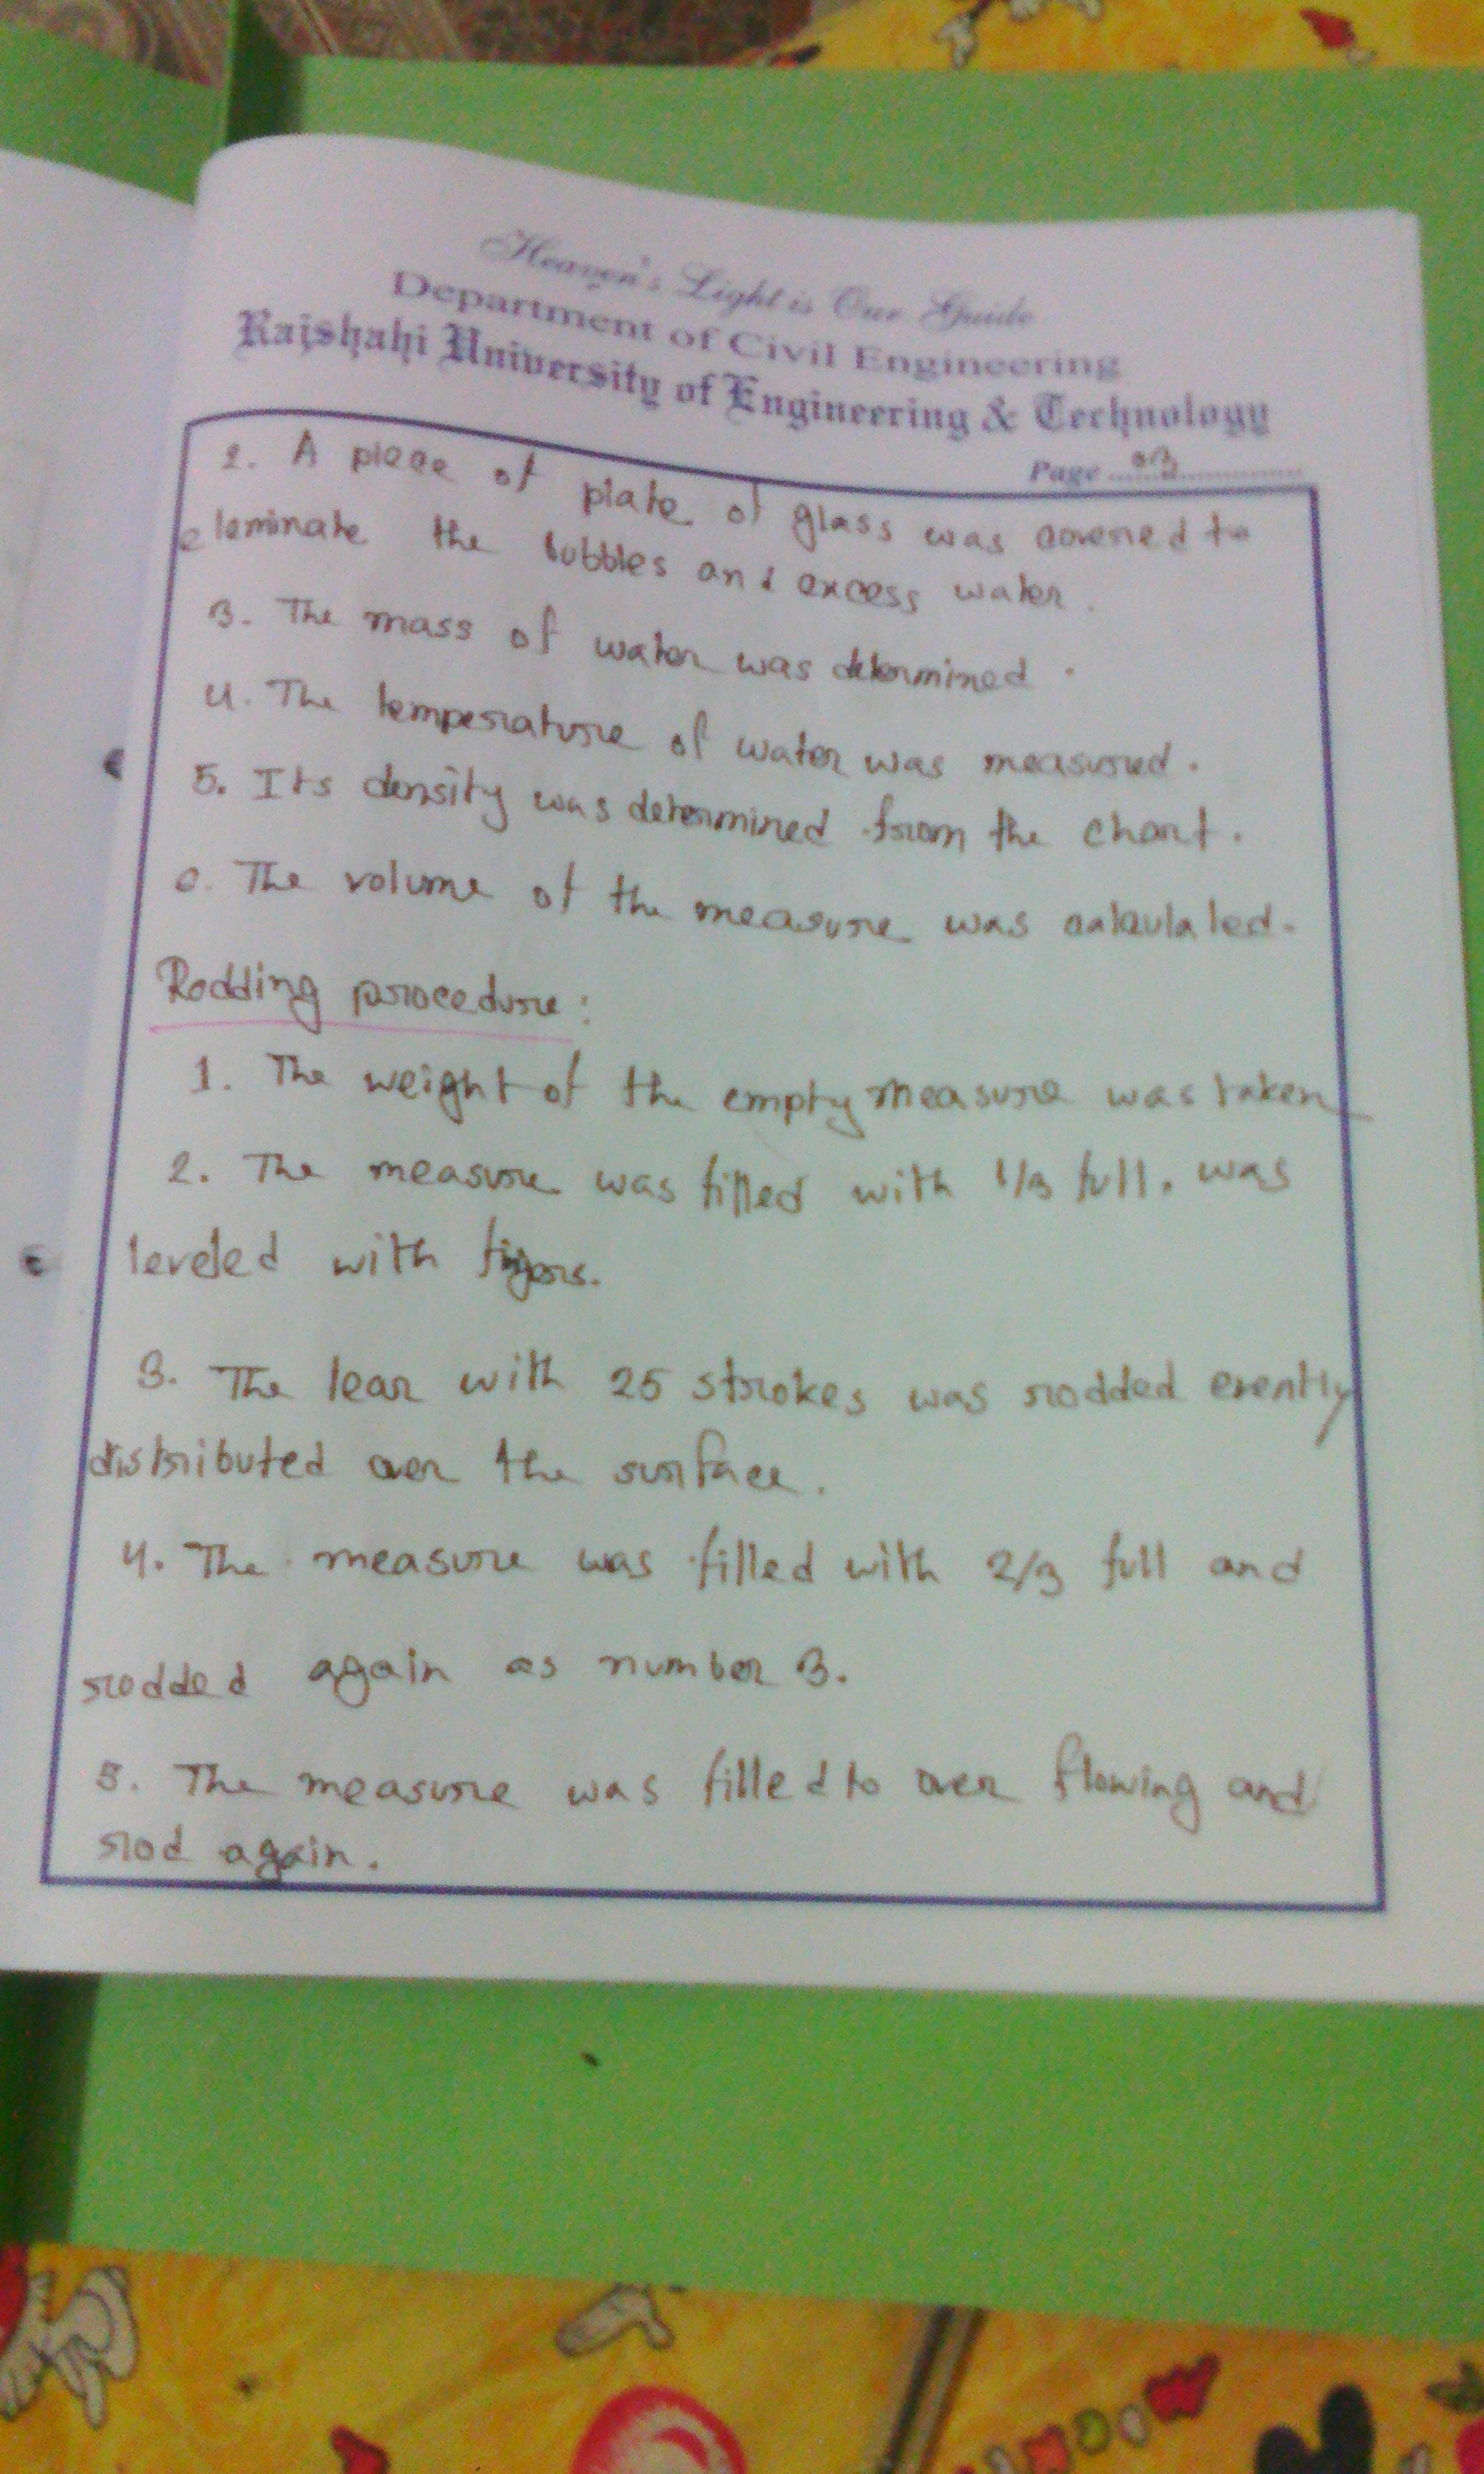 Heaven's Light is Our Guide
Department of Civil Engineering
Rajshahi University of Engineering & Technology
Page 03
2. A piece of plate of glass was covered to
eleminate the bubbles and excess water.
3. The mass of water was determined.
4. The temperature of water was measured.
5. Its density was determined from the chart.
6. The volume of the measure was calculated.
Rodding procedure:
1. The weight of the empty measure was taken
2. The measure was filled with 1/3 full. was
leveled with
3. The lear with 25 strokes was rodded evently
distributed over the surface.
4. The measure was filled with 2/3 full and
rodded again as number 3.
5. The measure was filled to over flowing and
rod again.